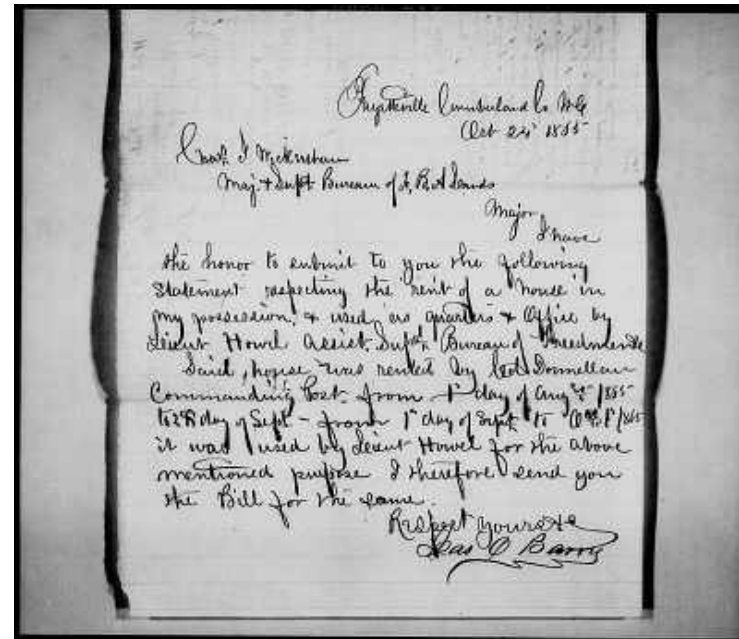 Fayetteville Cumberland Co N.C.
Oct 24" 1865
Chas. J Wickersham
Maj. & Supt Bureau of F, R & A Lands
Major
I have
the honor to submit to you the following
Statement respecting the rent of a house in
my possession, & used, as quarters & Office by
Lieut Howel Assist. Supt, Bureau of Freedmen &c
Said, house was rented by Col. Donnellan
Commanding Post. from 1st day of Aug 1865
to day of Sept - from 1st day of Sept, to 1865
it was used by Lieut Howel for the above
mentioned purpose I therefore send you
the Bill for the same
Respect yours &c
Barry